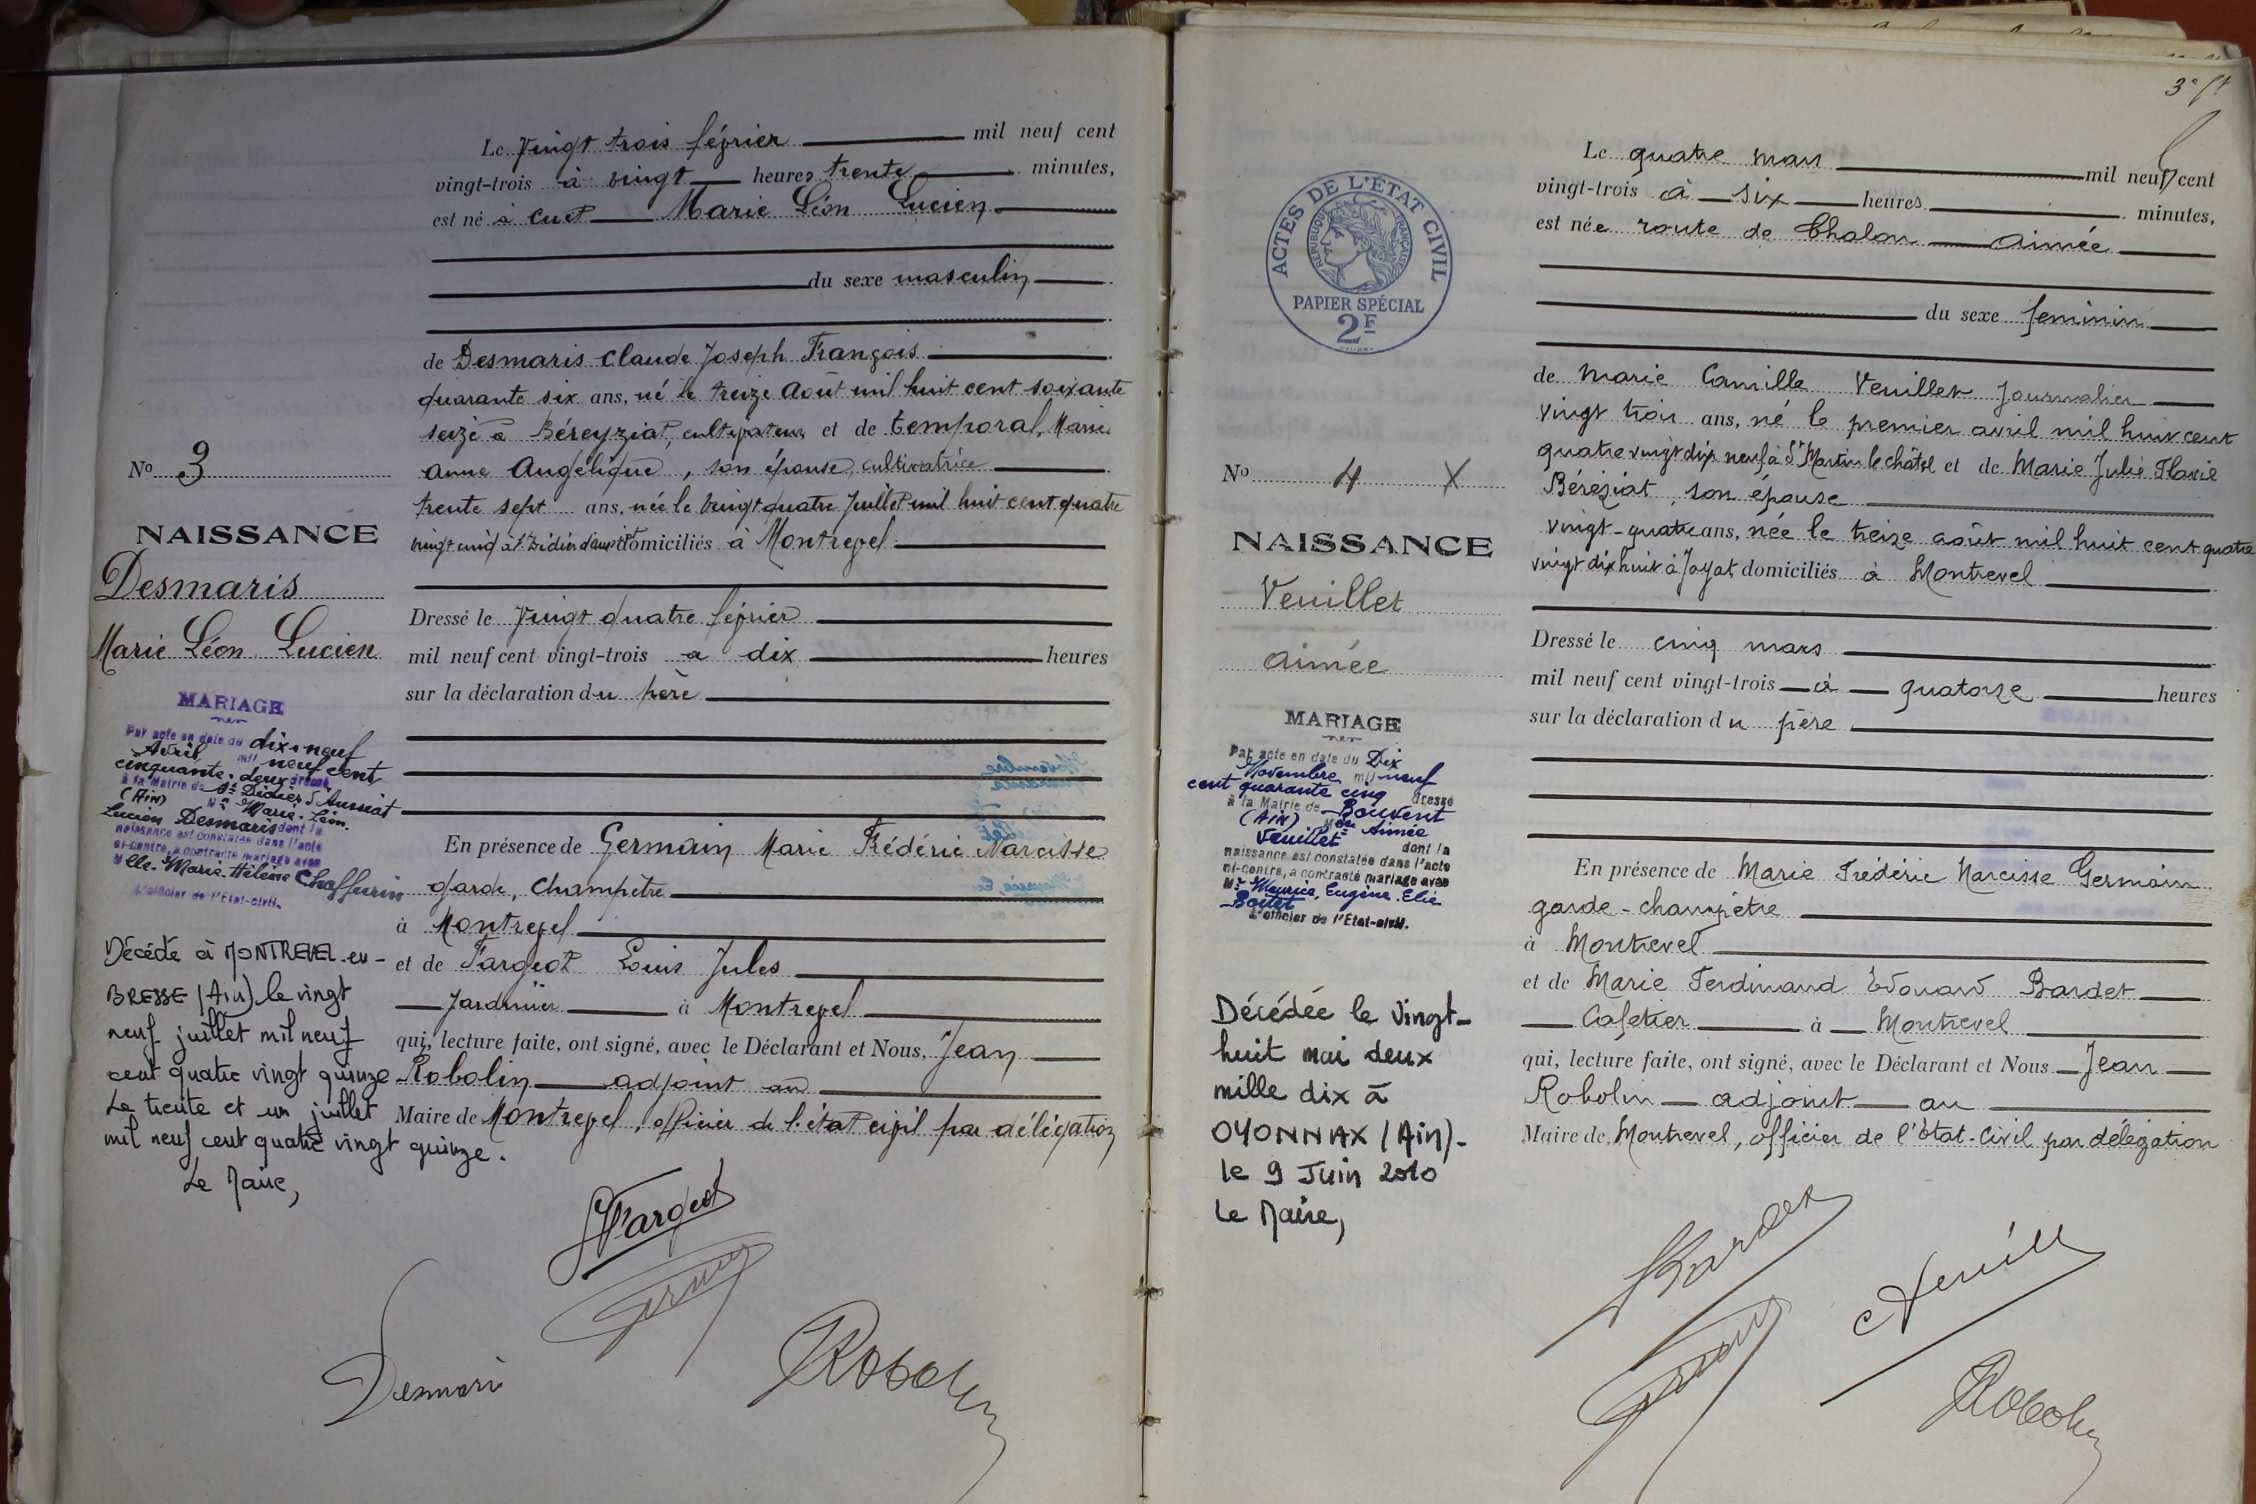 Le vingt trois février mil neuf cent
vingt-trois à vingt heures trente minutes,
est né à Cuet Marie Léon Lucien
du sexe masculin
de Desmaris Claude Joseph François
quarante six ans, né le treize Août mil huit cent soixante
seize à Béreyziat, cultivateur et de temporal, Marie
anne Angélique, son épouse, cultivatrice
trente sept ans, née le vingt quatre juillet mil huit cent quatre
vingt cinq à St Didier d'aussiat domiciliés à Montrevel
Dressé le vingt quatre février
mil neuf cent vingt-trois a dix heures
sur la déclaration du père
En présence de Germain Marie Frédéric Narcisse
garde, champêtre
à Montrevel
et de Fargeot Louis Jules
Jardinier à Montrevel
qui, lecture faite, ont signé, avec le Déclarant et Nous, Jean
Robolin adjoint au
Maire de Montrevel, officier de l'état civil par délégation
No 3
NAISSANCE
Desmaris
Marie Léon Lucien
MARIAGE
Par acte en date du dix-neuf
Avril mil neuf cent
cinquante-deux dressé
à la Mairie de St Didier d'Aussiat
(Ain) Mr Marie-Léon
Lucien Desmaris dont la
naissance est constatée dans l'acte
ci-contre, a contracté mariage avec
Melle Marie-Hélène Chaffurin
L'officier de l'Etat-civil.
Décédé à MONTREVEL-en-
BRESSE (Ain) le vingt
neuf juillet mil neuf
cent quatre vingt quinze
Le trente et un juillet
mil neuf cent quatre vingt quinze.
Le Maire,
Fargeot
Desmaris
Robolin
3e ft
Le quatre mars mil neuf cent
vingt-trois à six heures minutes,
est née route de Chalon Aimée
du sexe feminin
de Marie Camille Veuillet Journalier
vingt trois ans, né le premier avril mil huit cent
quatre vingt dix neuf à St Martin le châtel et de Marie Julie Flavie
Béréziat, son épouse
vingt-quatre ans, née le treize août mil huit cent quatre
vingt dix huit à Jayat domiciliés à Montrevel
Dressé le cinq mars
mil neuf cent vingt-trois à quatorze heures
sur la déclaration du père
En présence de Marie Frédéric Narcisse Germain
garde-champêtre
à Montrevel
et de Marie Ferdinand Edouard Bardet
Cafetier à Montrevel
qui, lecture faite, ont signé, avec le Déclarant et Nous Jean
Robolin adjoint au
Maire de Montrevel, officier de l'Etat-Civil par délégation
ACTES DE L'ÉTAT CIVIL
RÉPUBLIQUE FRANÇAISE
PAPIER SPÉCIAL
2F
No 4 X
NAISSANCE
Veuillet
Aimée
MARIAGE
Par acte en date du Dix
Novembre mil neuf
cent quarante cinq dressé
à la Mairie de Bouvent
(Ain) Melle Aimée
Veuillet dont la
naissance est constatée dans l'acte
ci-contre, a contracté mariage avec
Mr Maurice, Eugène, Elie
L'officier de l'Etat-civil.
Décédée le vingt-
huit mai deux
mille dix à
OYONNAX (Ain)-
le 9 Juin 2010
Le Maire,
Bardet
Veuillet
Robolin